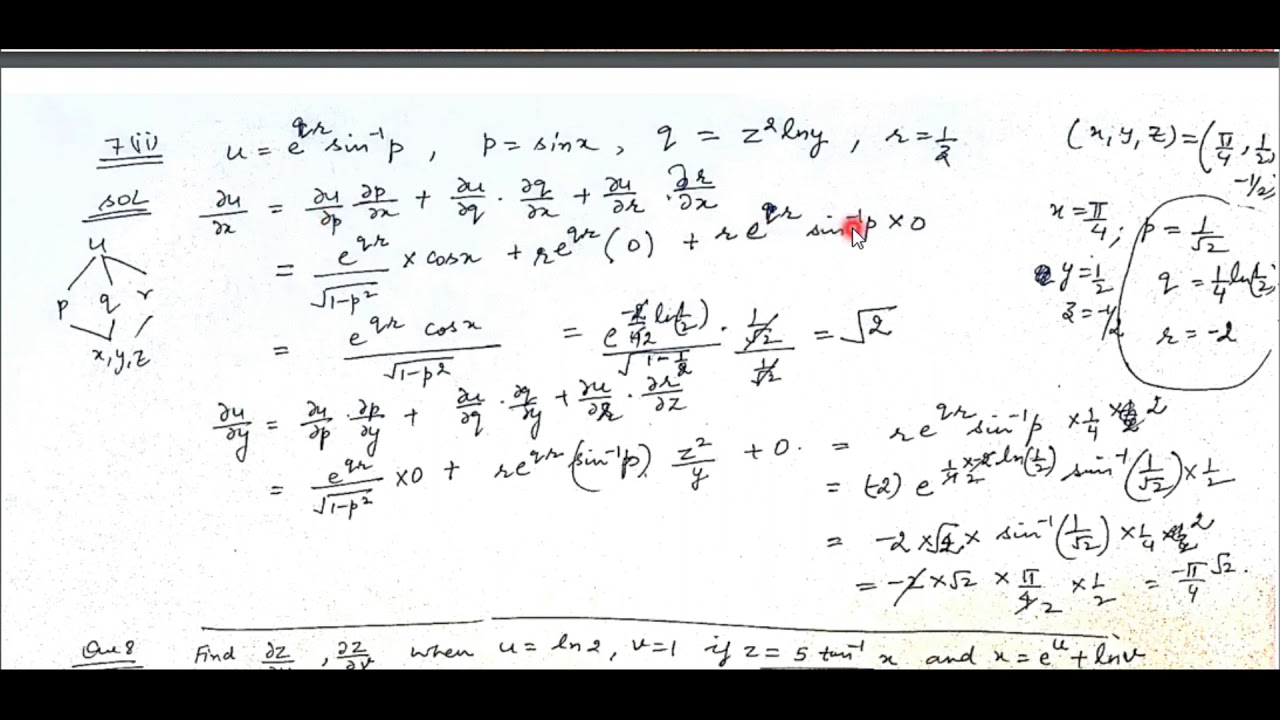 7(ii) u = e^{qr} sin⁻¹p , p = sinx , q = z² lny , r = 1/z (x, y, z) = (π/4, 1/2, -1/2)
SOL ∂u/∂x = ∂u/∂p ∂p/∂x + ∂u/∂q · ∂q/∂x + ∂u/∂r · ∂r/∂x
= e^{qr}/√(1-p²) × cosx + r e^{qr} (0) + r e^{qr} sin⁻¹p × 0
x = π/4 ; p = 1/√2
y = 1/2 q = 1/4 ln(1/2)
z = -1/2 r = -2
u
p q r
x, y, z
= e^{qr} cosx / √(1-p²) = · 1/√2 / 1/√2 = √2
∂u/∂y = ∂u/∂p · ∂p/∂y + ∂u/∂q · ∂q/∂y + ∂u/∂r · ∂r/∂z
= e^{qr}/√(1-p²) × 0 + r e^{qr} (sin⁻¹p) · z²/y + 0 .
= r e^{qr} sin⁻¹p × 1/4 × 2
= (-2) e sin⁻¹(1/√2) × 1/2
= -2 × √2 × sin⁻¹(1/√2) × 1/4 × 2
= -2 × √2 × π/4 × 1/2 = -π/4 √2 .
Que 8 Find ∂z/∂u , ∂z/∂v when u = ln2 , v = 1 if z = 5 tan⁻¹ x and x = e^u + lnv